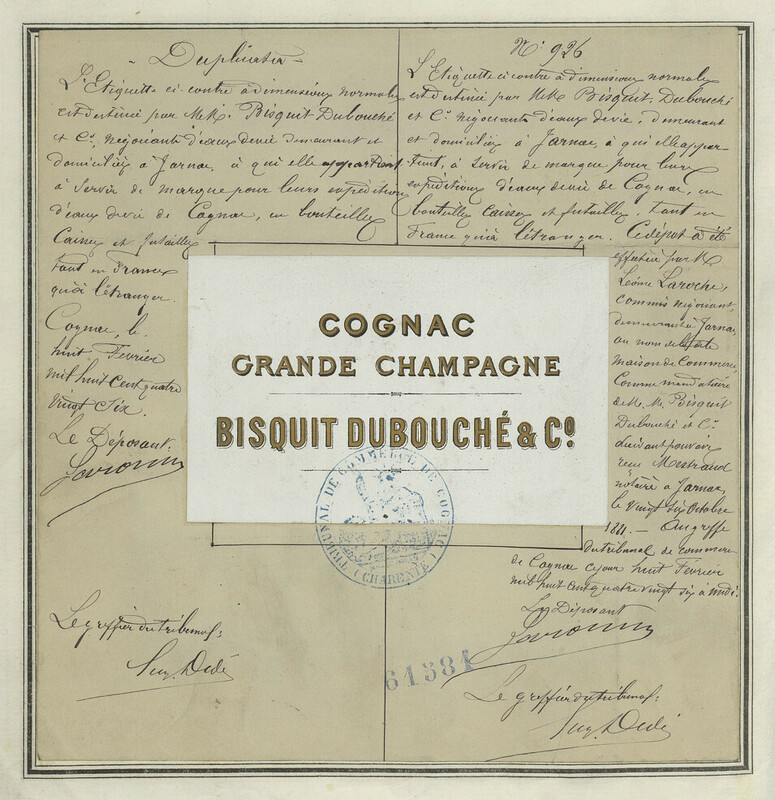 Duplicata
L'Etiquette ci contre à dimensions normales
est destinée par M.M. Bisquit, Dubouché
et Cie, négociants d'eaux de vie demeurant et
domiciliés à Jarnac, à qui elle appartient
à servir de marque pour leurs expéditions
d'eaux de vie de Cognac, en bouteilles
Caisses et futailles
tant en France
qu'à l'étranger.
Cognac, le
huit Février
mil huit cent quatre
vingt Six.
Le Déposant
Le greffier du tribunal:
N° 926
L'Etiquette ci contre à dimensions normales
est destinée par M.M. Bisquit, Dubouché
et Cie négociants d'eaux de vie, demeurant
et domiciliés à Jarnac, à qui elle appar-
tient, à servir de marque pour leurs
expéditions d'eaux de vie de Cognac, en
bouteilles caisses et futailles, tant en
France qu'à l'étranger. Ce dépôt a été
effectué par M.
Léonce Laroche,
commis négociant,
demeurant à Jarnac,
au nom de
maison de Commerce,
Comme mandataire
de M. M. Bisquit
Dubouché et Cie
suivant pouvoir
reçu Mestraud
notaire à Jarnac,
le vingt six Octobre
1881. — Au greffe
du tribunal de commerce
de Cognac ce jour huit Février
mil huit cent quatre vingt six à midi.
Le Déposant
Le greffier du tribunal:
COGNAC
GRANDE CHAMPAGNE
BISQUIT DUBOUCHÉ & Co
TRIBUNAL DE COMMERCE DE COGNAC
(CHARENTE)
61581